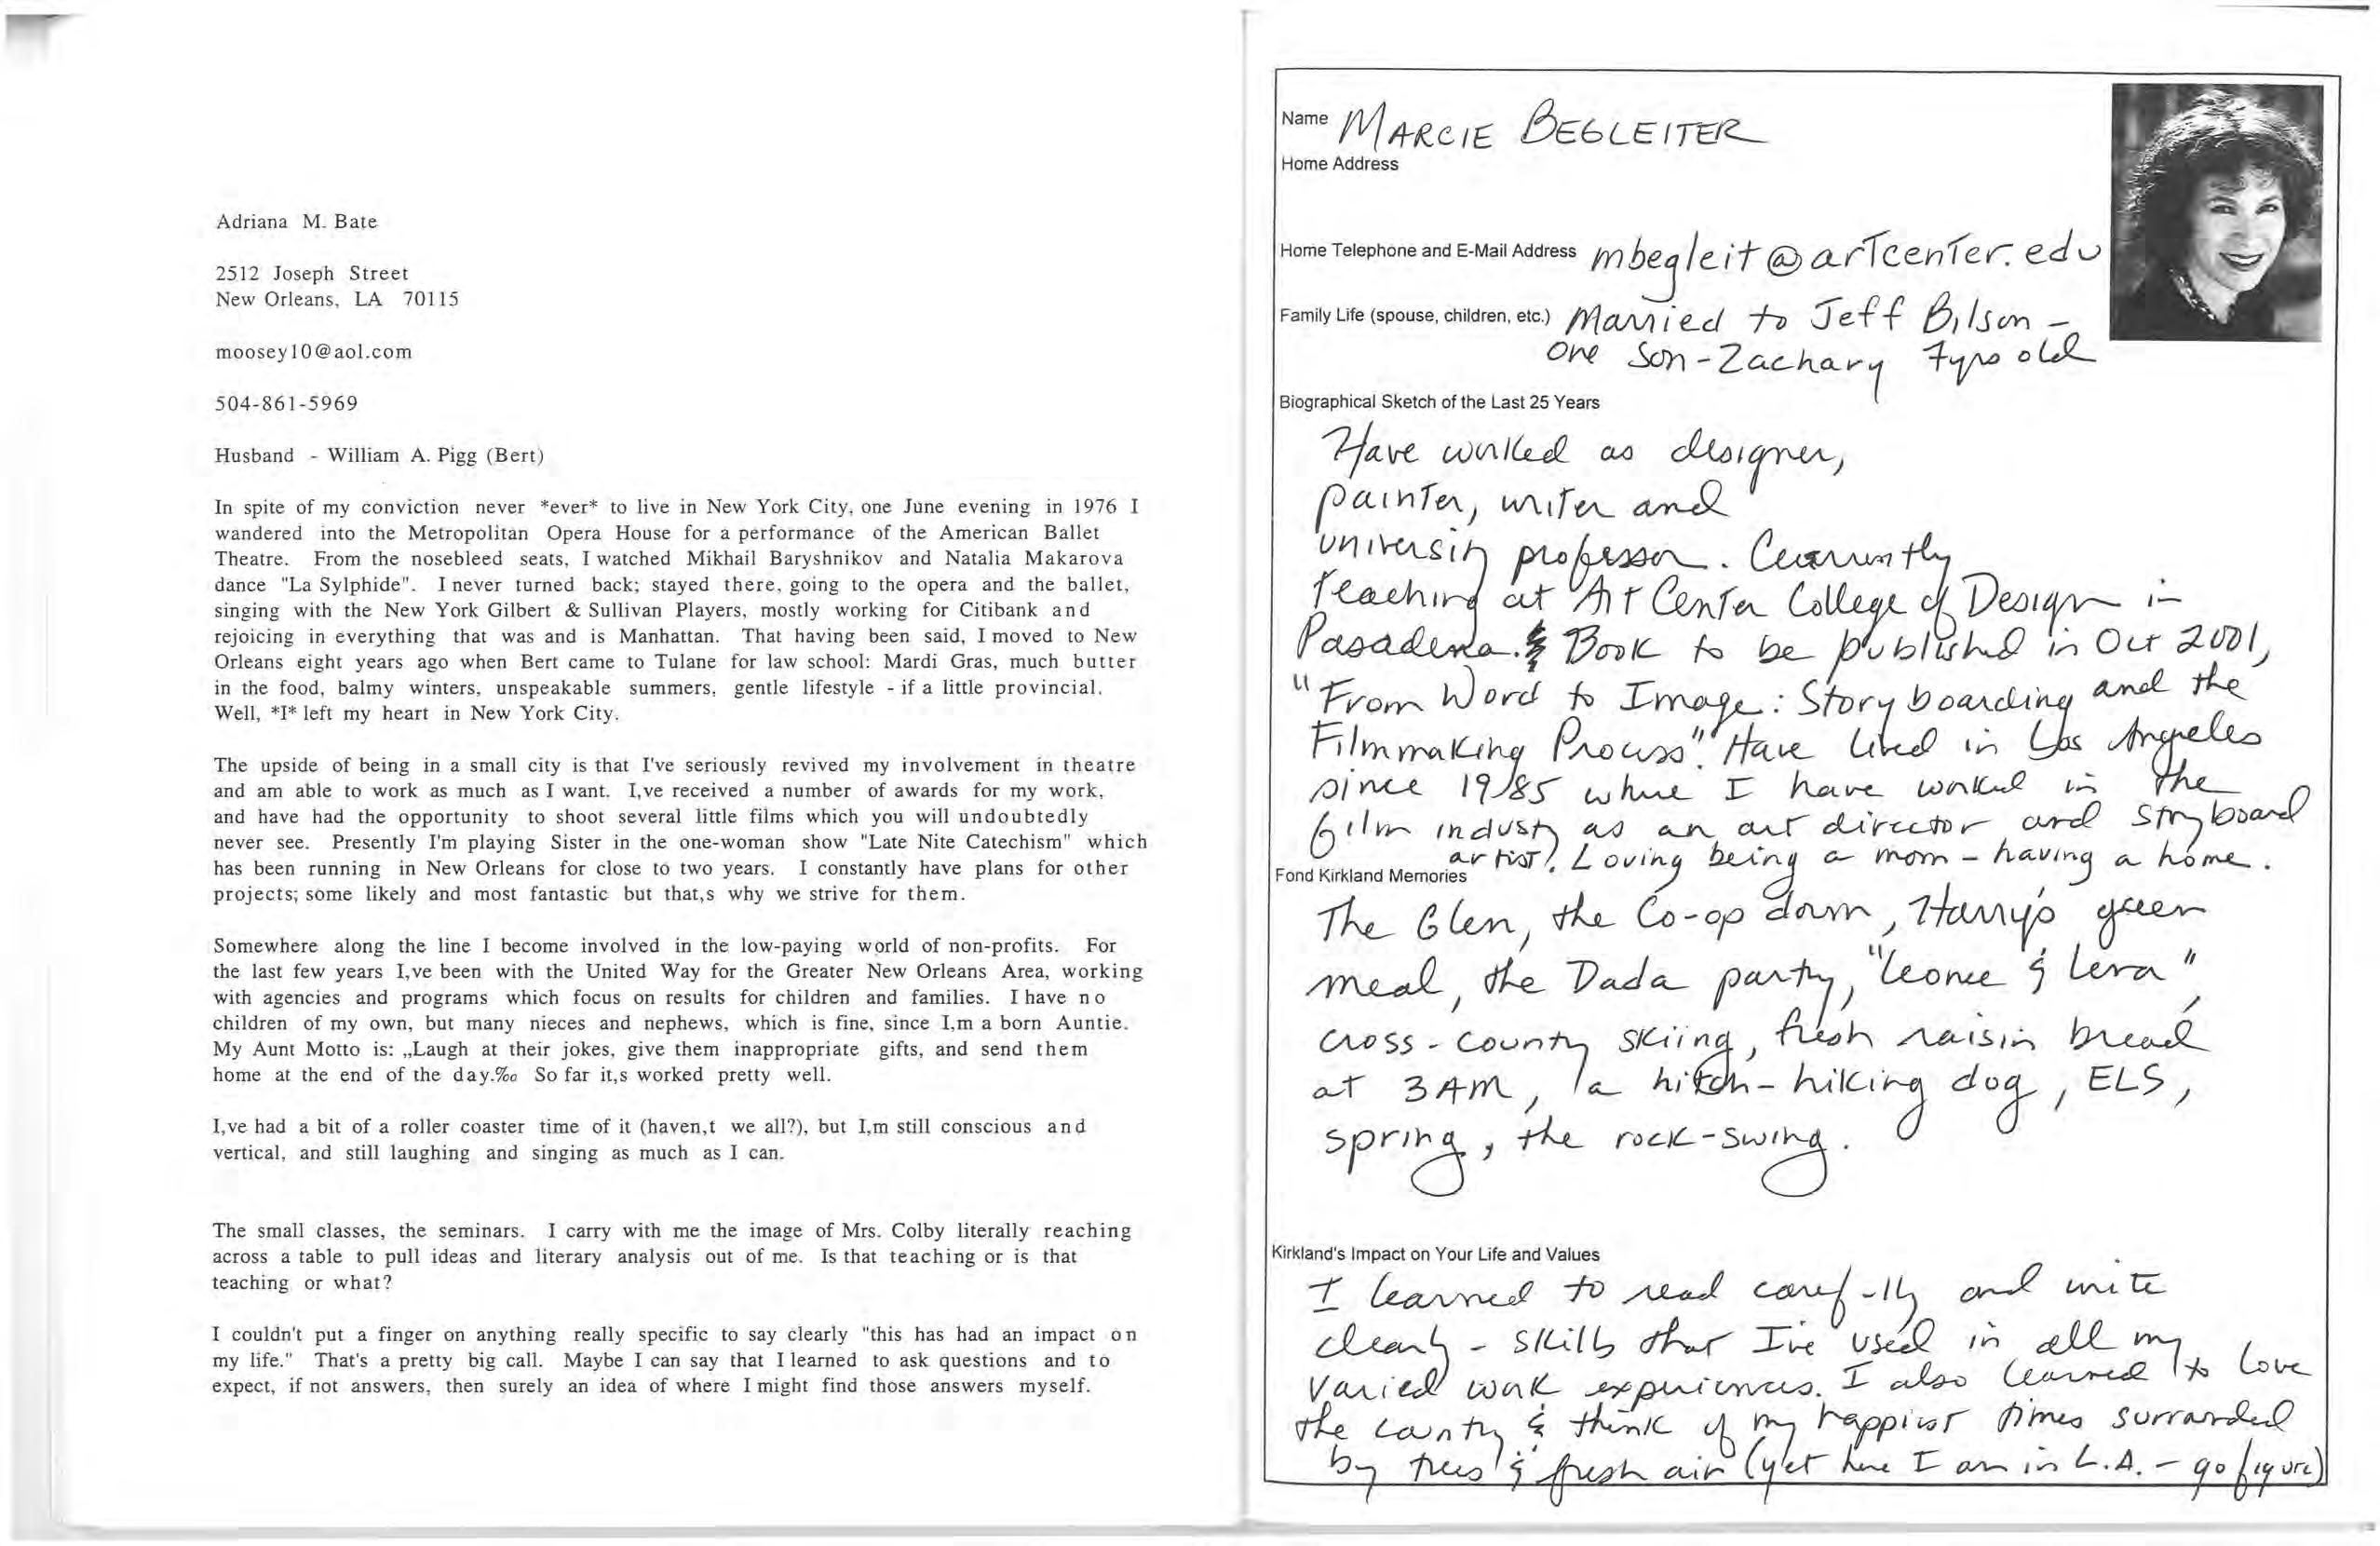 Adriana M. Bate
2512 Joseph Street
New Orleans, LA 70115
moosey10@aol.com
504-861-5969
Husband - William A. Pigg (Bert)
In spite of my conviction never *ever* to live in New York City, one June evening in 1976 I
wandered into the Metropolitan Opera House for a performance of the American Ballet
Theatre. From the nosebleed seats, I watched Mikhail Baryshnikov and Natalia Makarova
dance "La Sylphide". I never turned back; stayed there, going to the opera and the ballet,
singing with the New York Gilbert & Sullivan Players, mostly working for Citibank and
rejoicing in everything that was and is Manhattan. That having been said, I moved to New
Orleans eight years ago when Bert came to Tulane for law school: Mardi Gras, much butter
in the food, balmy winters, unspeakable summers, gentle lifestyle - if a little provincial.
Well, *I* left my heart in New York City.
The upside of being in a small city is that I've seriously revived my involvement in theatre
and am able to work as much as I want. I,ve received a number of awards for my work,
and have had the opportunity to shoot several little films which you will undoubtedly
never see. Presently I'm playing Sister in the one-woman show "Late Nite Catechism" which
has been running in New Orleans for close to two years. I constantly have plans for other
projects; some likely and most fantastic but that,s why we strive for them.
Somewhere along the line I become involved in the low-paying world of non-profits. For
the last few years I,ve been with the United Way for the Greater New Orleans Area, working
with agencies and programs which focus on results for children and families. I have no
children of my own, but many nieces and nephews, which is fine, since I,m a born Auntie.
My Aunt Motto is: „Laugh at their jokes, give them inappropriate gifts, and send them
home at the end of the day.‰ So far it,s worked pretty well.
I,ve had a bit of a roller coaster time of it (haven,t we all?), but I,m still conscious and
vertical, and still laughing and singing as much as I can.
The small classes, the seminars. I carry with me the image of Mrs. Colby literally reaching
across a table to pull ideas and literary analysis out of me. Is that teaching or is that
teaching or what?
I couldn't put a finger on anything really specific to say clearly "this has had an impact on
my life." That's a pretty big call. Maybe I can say that I learned to ask questions and to
expect, if not answers, then surely an idea of where I might find those answers myself.
Name MARCIE BEGLEITER
Home Address
Home Telephone and E-Mail Address mbegleit@artcenter.edu
Family Life (spouse, children, etc.) Married to Jeff Bilson -
one son - Zachary 7yrs old
Biographical Sketch of the Last 25 Years
Have worked as designer,
painter, writer and
university professor. Currently
teaching at Art Center College of Design in
Pasadena. Book to be published in Oct 2001,
"From Word to Image: Storyboarding and the
Filmmaking Process". Have lived in Los Angeles
since 1985 where I have worked in the
film industry as an art director and storyboard
artist. Loving being a mom - having a home.
Fond Kirkland Memories
The Glen, the Co-op dorm, Harry's green
meal, the Dada party, "Leonce & Lena",
cross-country skiing, fresh raisin bread
at 3AM, a hitch-hiking dog, ELS,
spring, the rock-swing.
Kirkland's Impact on Your Life and Values
I learned to read carefully and write
clearly - skills that I've used in all my
varied work experiences. I also learned to love
the country & think of my happiest times surrounded
by trees & fresh air (yet here I am in L.A. - go figure)